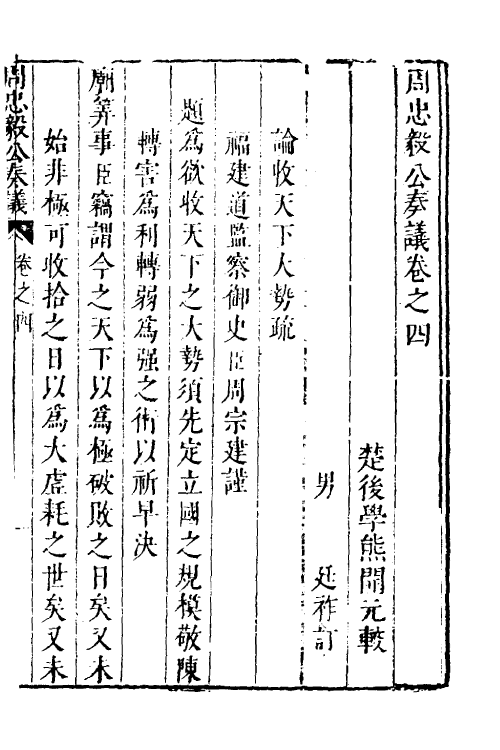 周忠毅公奏議卷之四
楚後學熊開元較
男　　廷祚訂
論收天下大勢疏
福建道監察御史臣周宗建謹
題爲欲收天下之大勢須先定立國之規模敬陳
轉害爲利轉弱爲强之術以祈早決
廟筭事臣竊謂今之天下以爲極破敗之日矣又未
始非極可收拾之日以爲大虛耗之世矣又未
周忠毅公奏議　卷之四